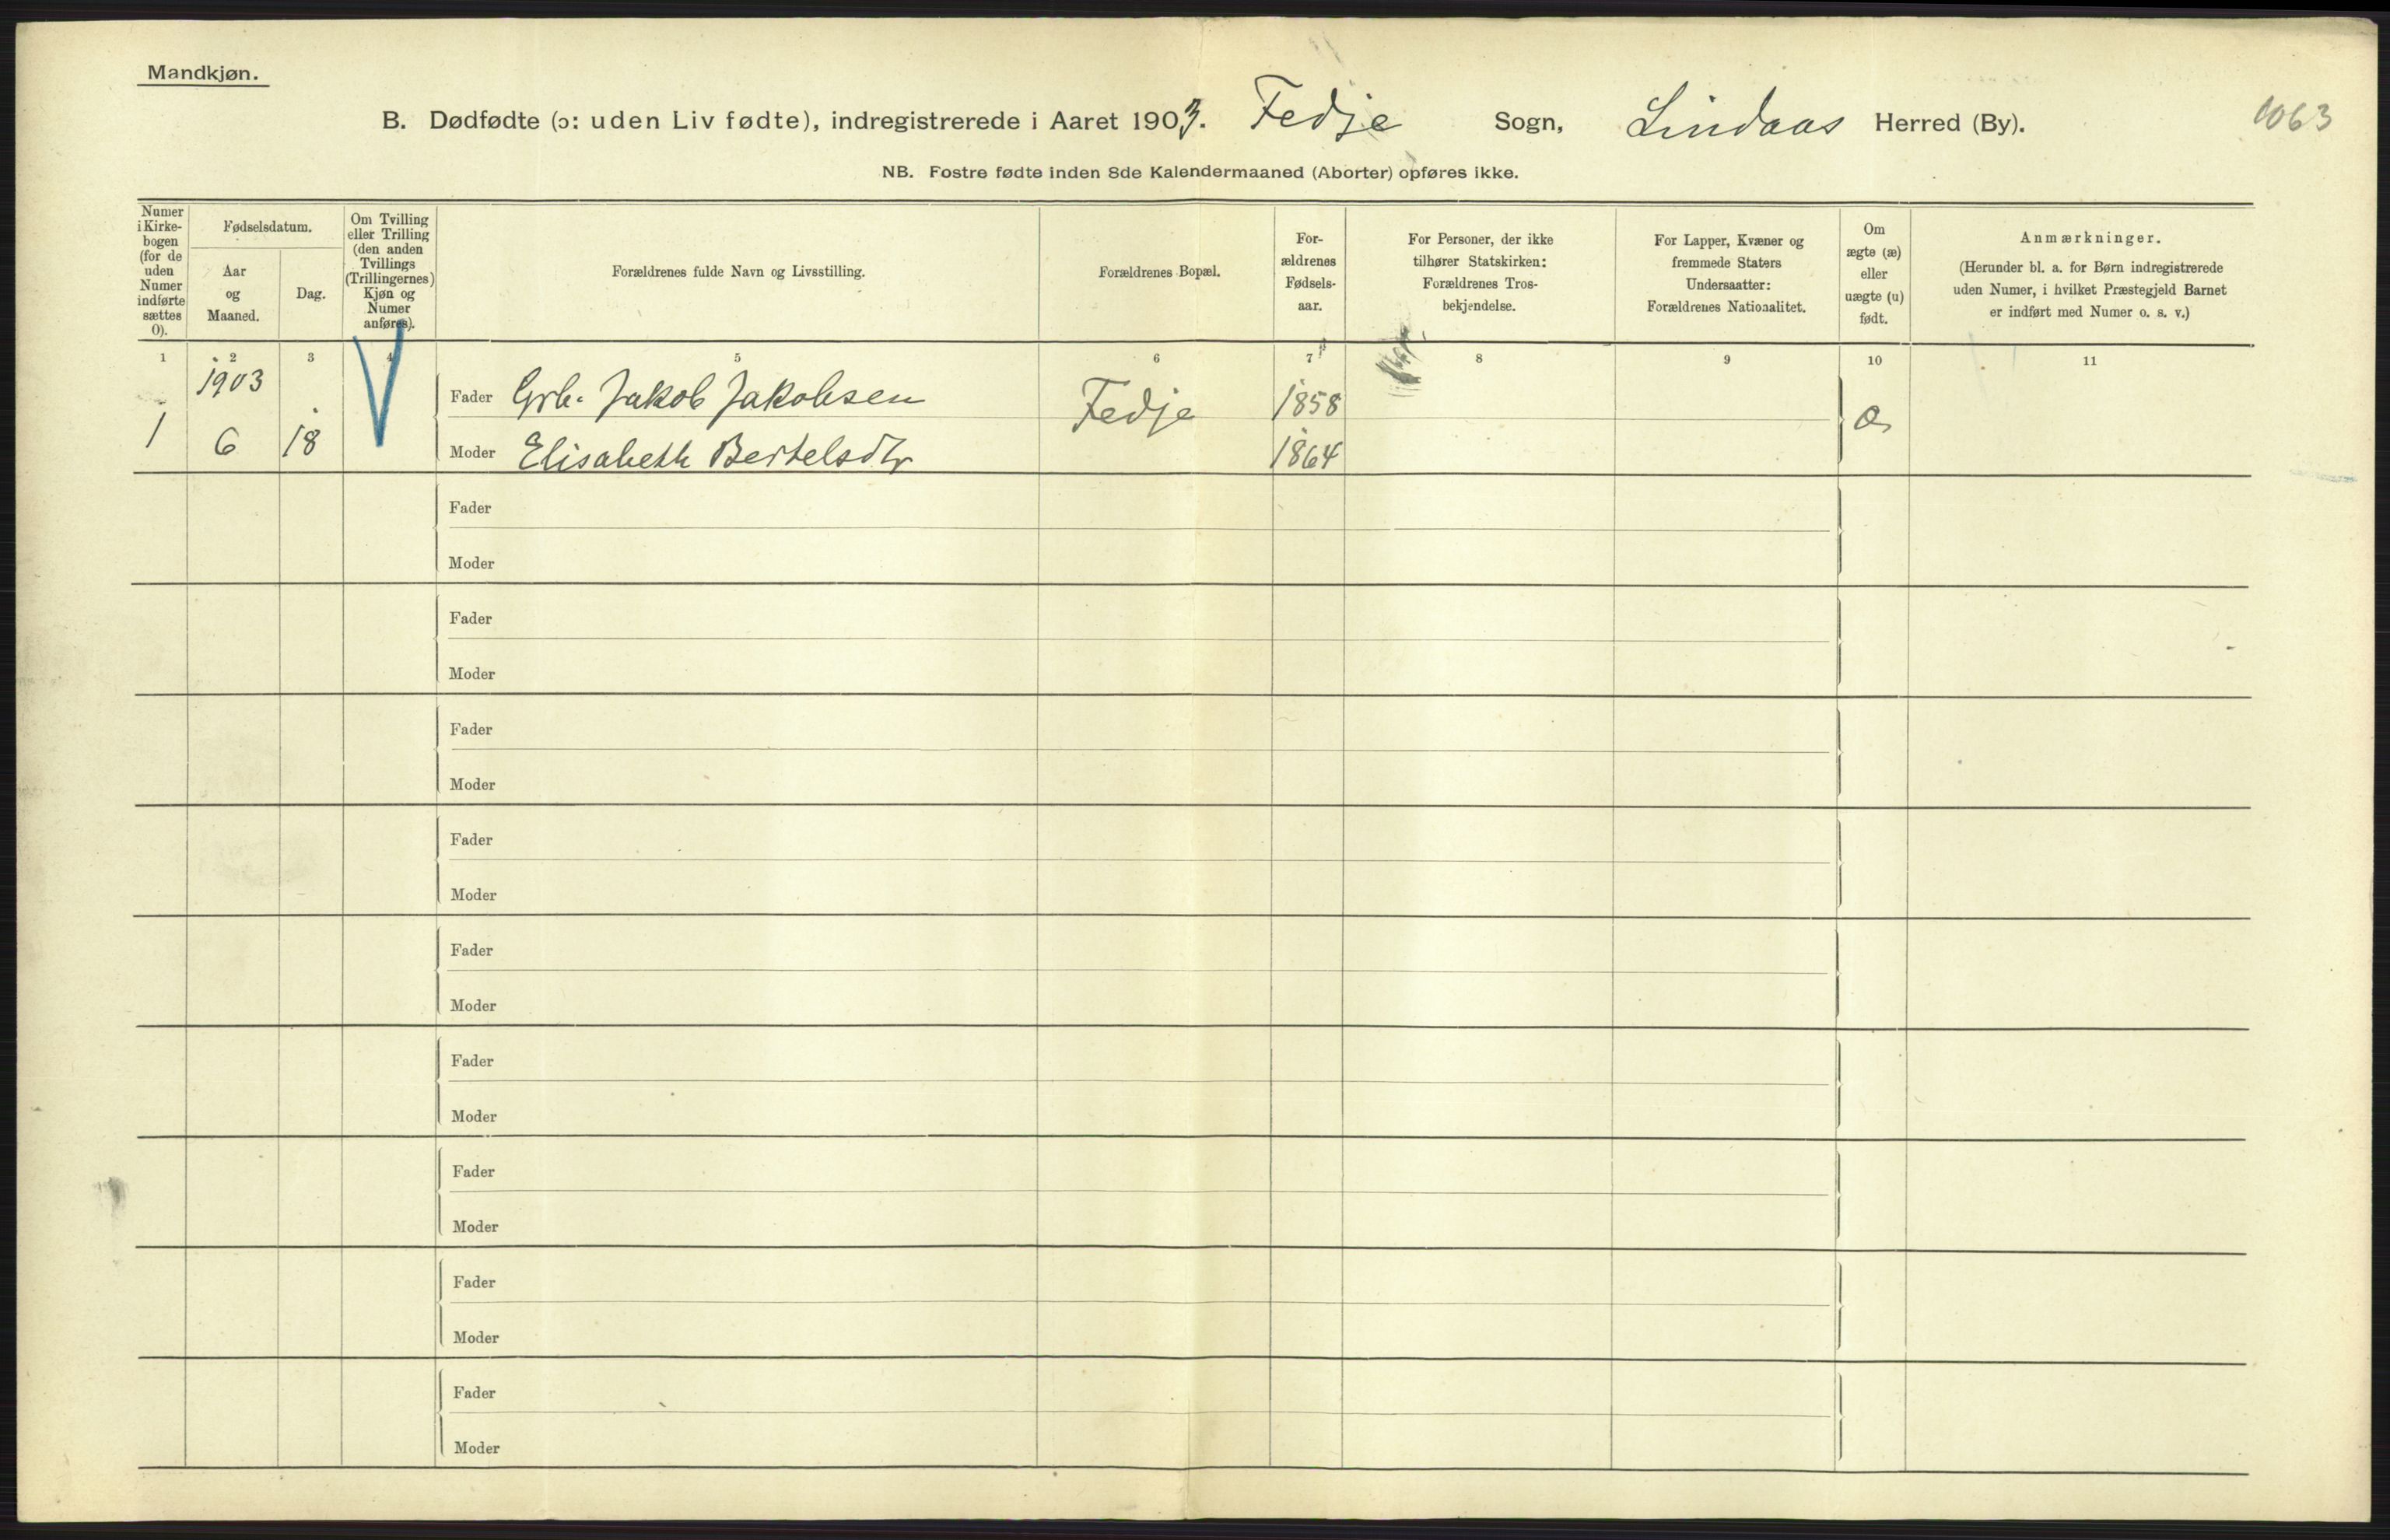 Mandkjøn.
B. Dødfødte (ɔ: uden Liv fødte), indregistrerede i Aaret 1903. Fedje Sogn, Lindaas Herred (By).
1063
NB. Fostre fødte inden 8de Kalendermaaned (Aborter) opføres ikke.
Numer i Kirke-bogen (for de uden Numer indførte sættes 0).
Fødselsdatum.
Aar og Maaned.
Dag.
Om Tvilling eller Trilling (den anden Tvillings (Trillingernes) Kjøn og Numer anføres).
Forældrenes fulde Navn og Livsstilling.
Forældrenes Bopæl.
For-ældrenes Fødsels-aar.
For Personer, der ikke tilhører Statskirken: Forældrenes Tros-bekjendelse.
For Lapper, Kvæner og fremmede Staters Undersaatter: Forældrenes Nationalitet.
Om ægte (æ) eller uægte (u) født.
Anmærkninger.
(Herunder bl. a. for Børn indregistrerede uden Numer, i hvilket Præstegjeld Barnet er indført med Numer o. s. v.)
1 2 3 4 5 6 7 8 9 10 11
1903
Fader Grb. Jakob Jakobsen Fedje 1858 æ
1 6 18 Moder Elisabeth Bertelsdtr 1864
Fader
Moder
Fader
Moder
Fader
Moder
Fader
Moder
Fader
Moder
Fader
Moder
Fader
Moder
Fader
Moder
Fader
Moder